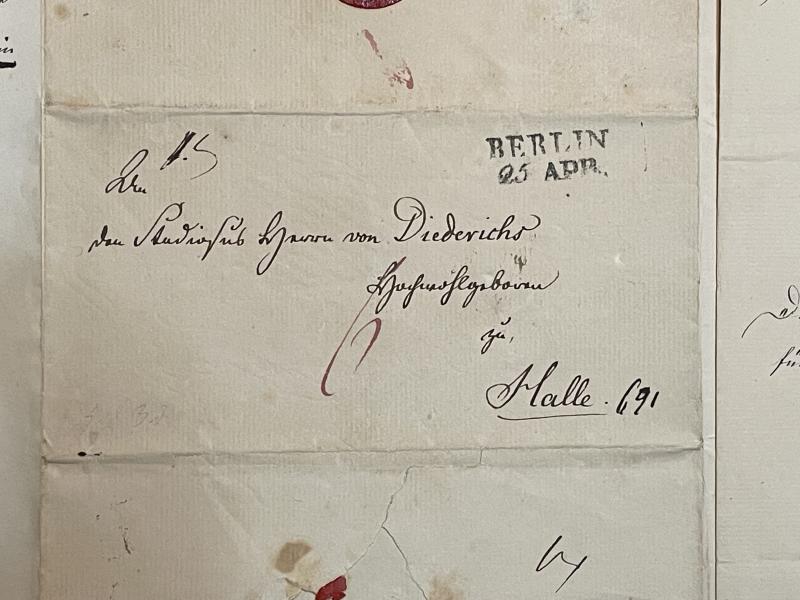 BERLIN
25 APR.
An
den Studiosus Herrn von Diederichs
Hochwohlgeboren
zu,
Halle. 691